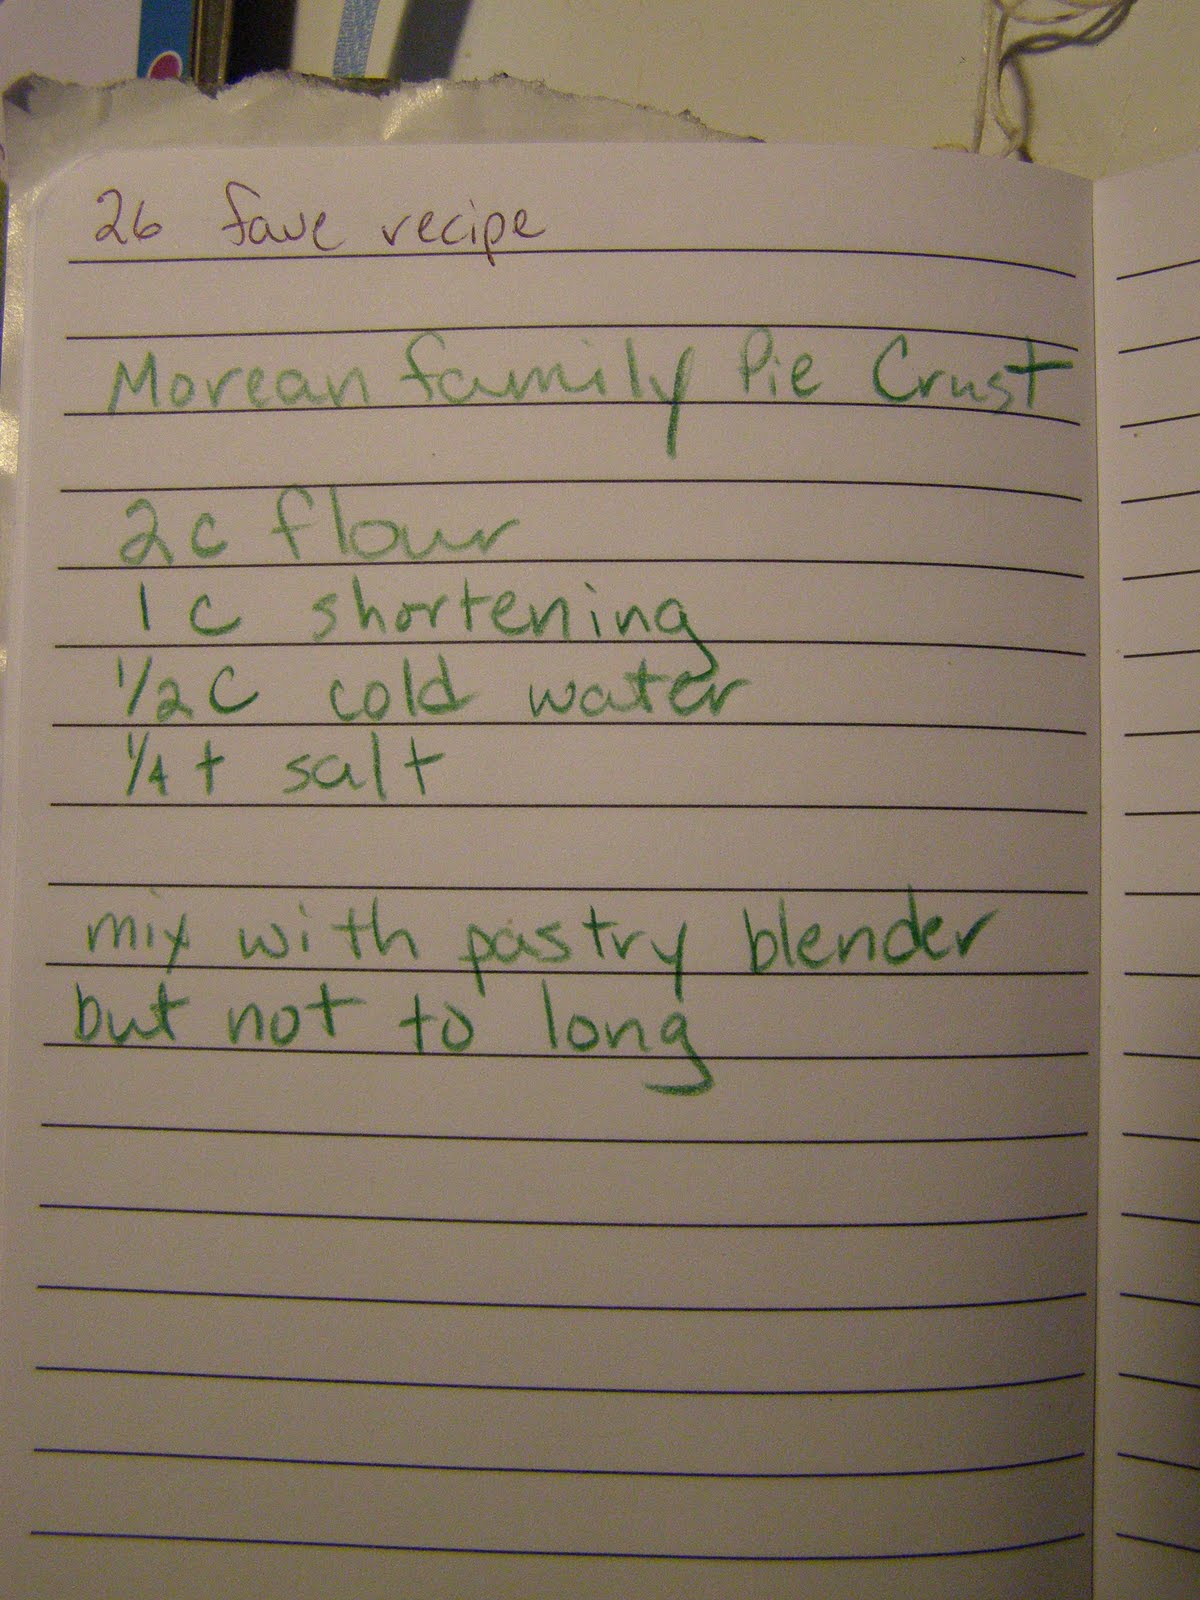 26 fave recipe
Morean family Pie Crust
2c flour
1 c shortening
1/2 c cold water
1/4 t salt
mix with pastry blender
but not to long